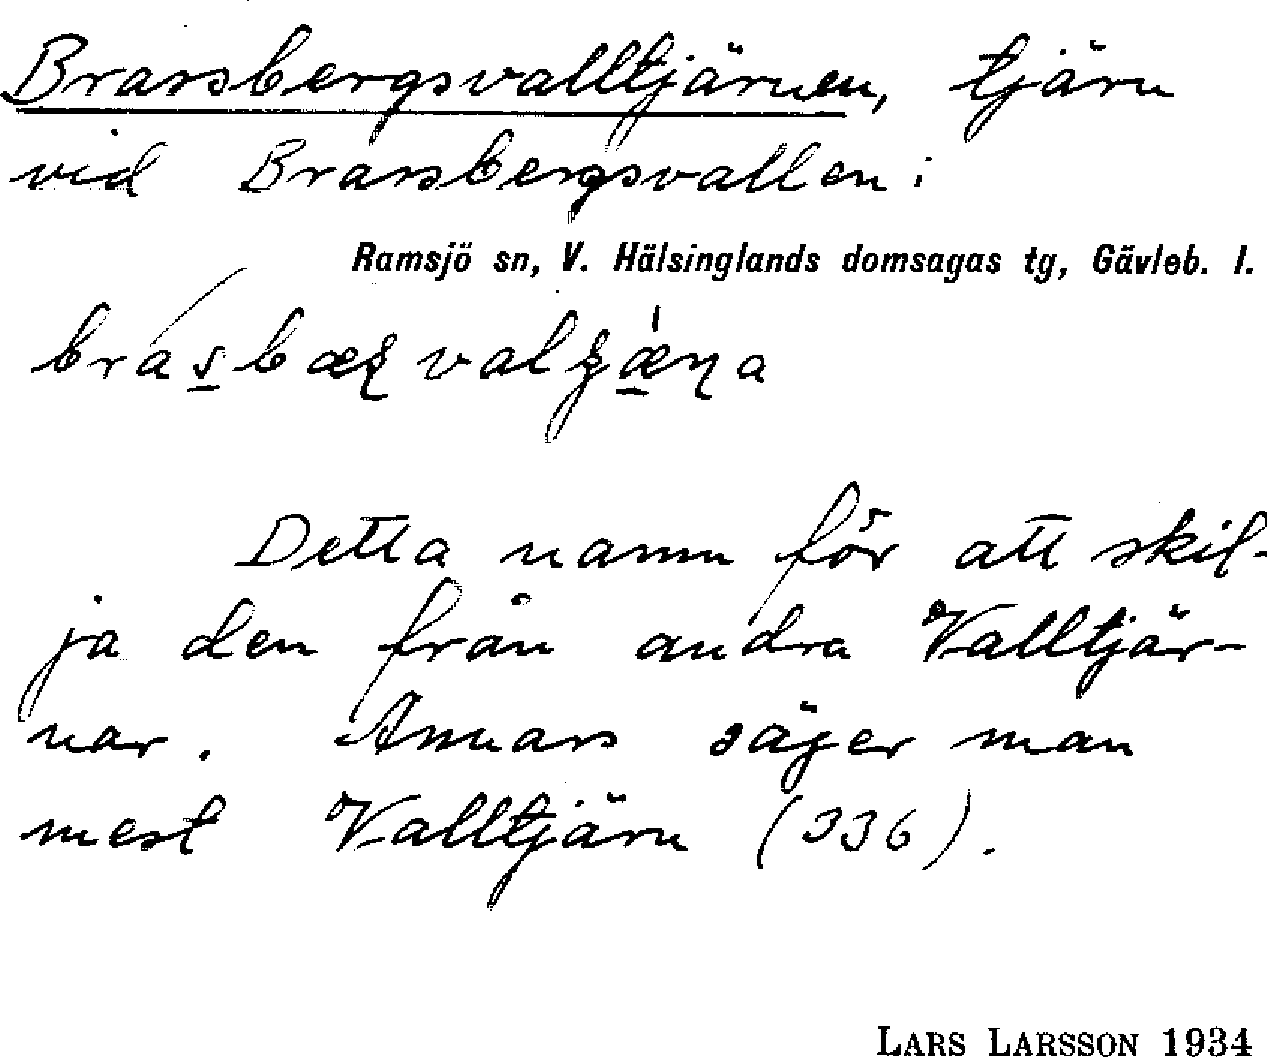 Brassbergsvalltjärnen, tjärn
vid Brassbergsvallen:
Ramsjö sn, V. Hälsinglands domsagas tg, Gävleb. l.
Detta namn för att skil-
ja den från andra Valltjär-
nar. Annars säger man
mest Valltjärn (336).
LARS LARSSON 1934